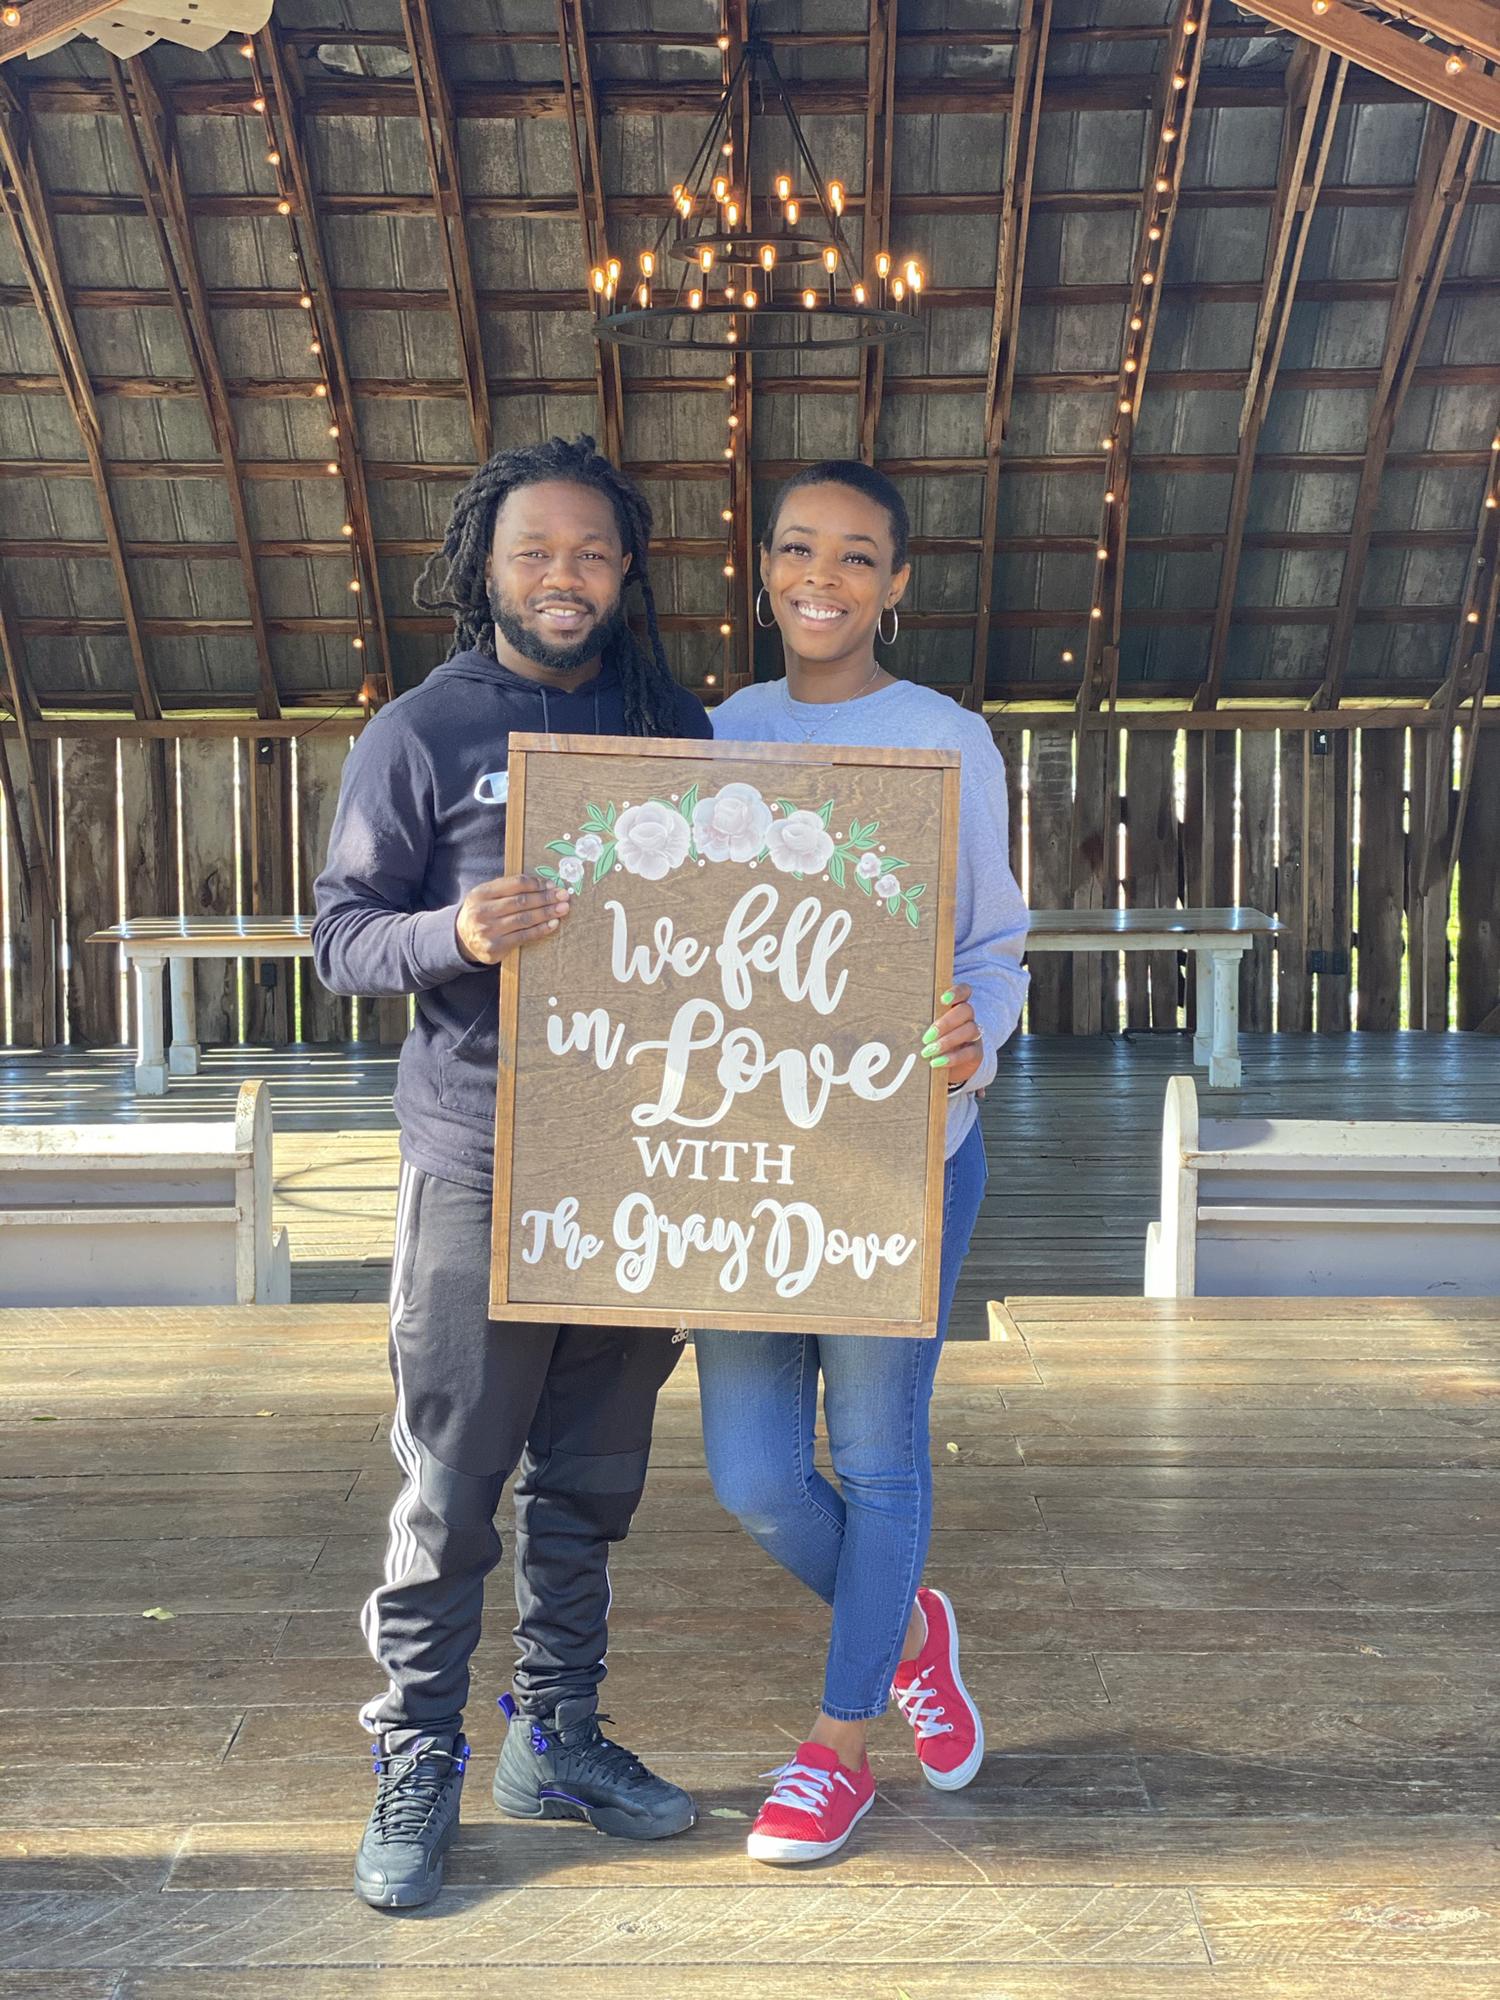 We fell
in Love
WITH
The Gray Dove